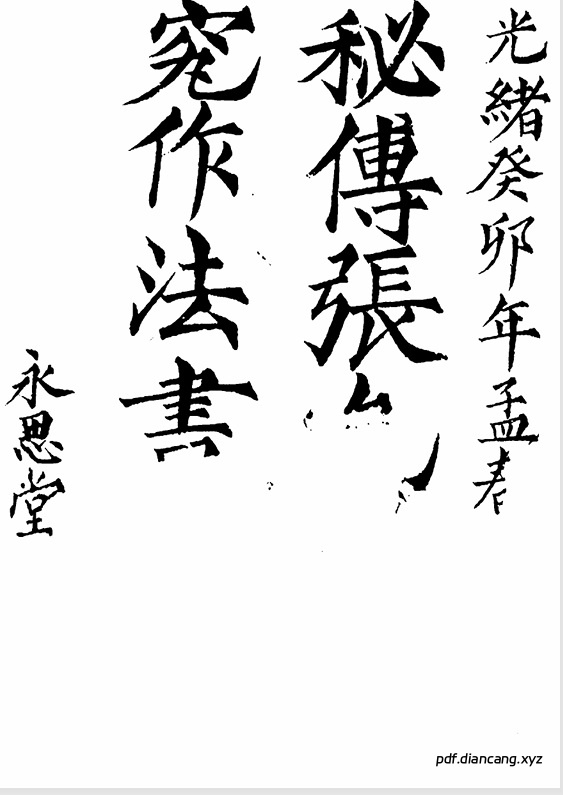 光緒癸卯年孟春
秘傳張
作法書
永思堂
pdf.diancang.xyz